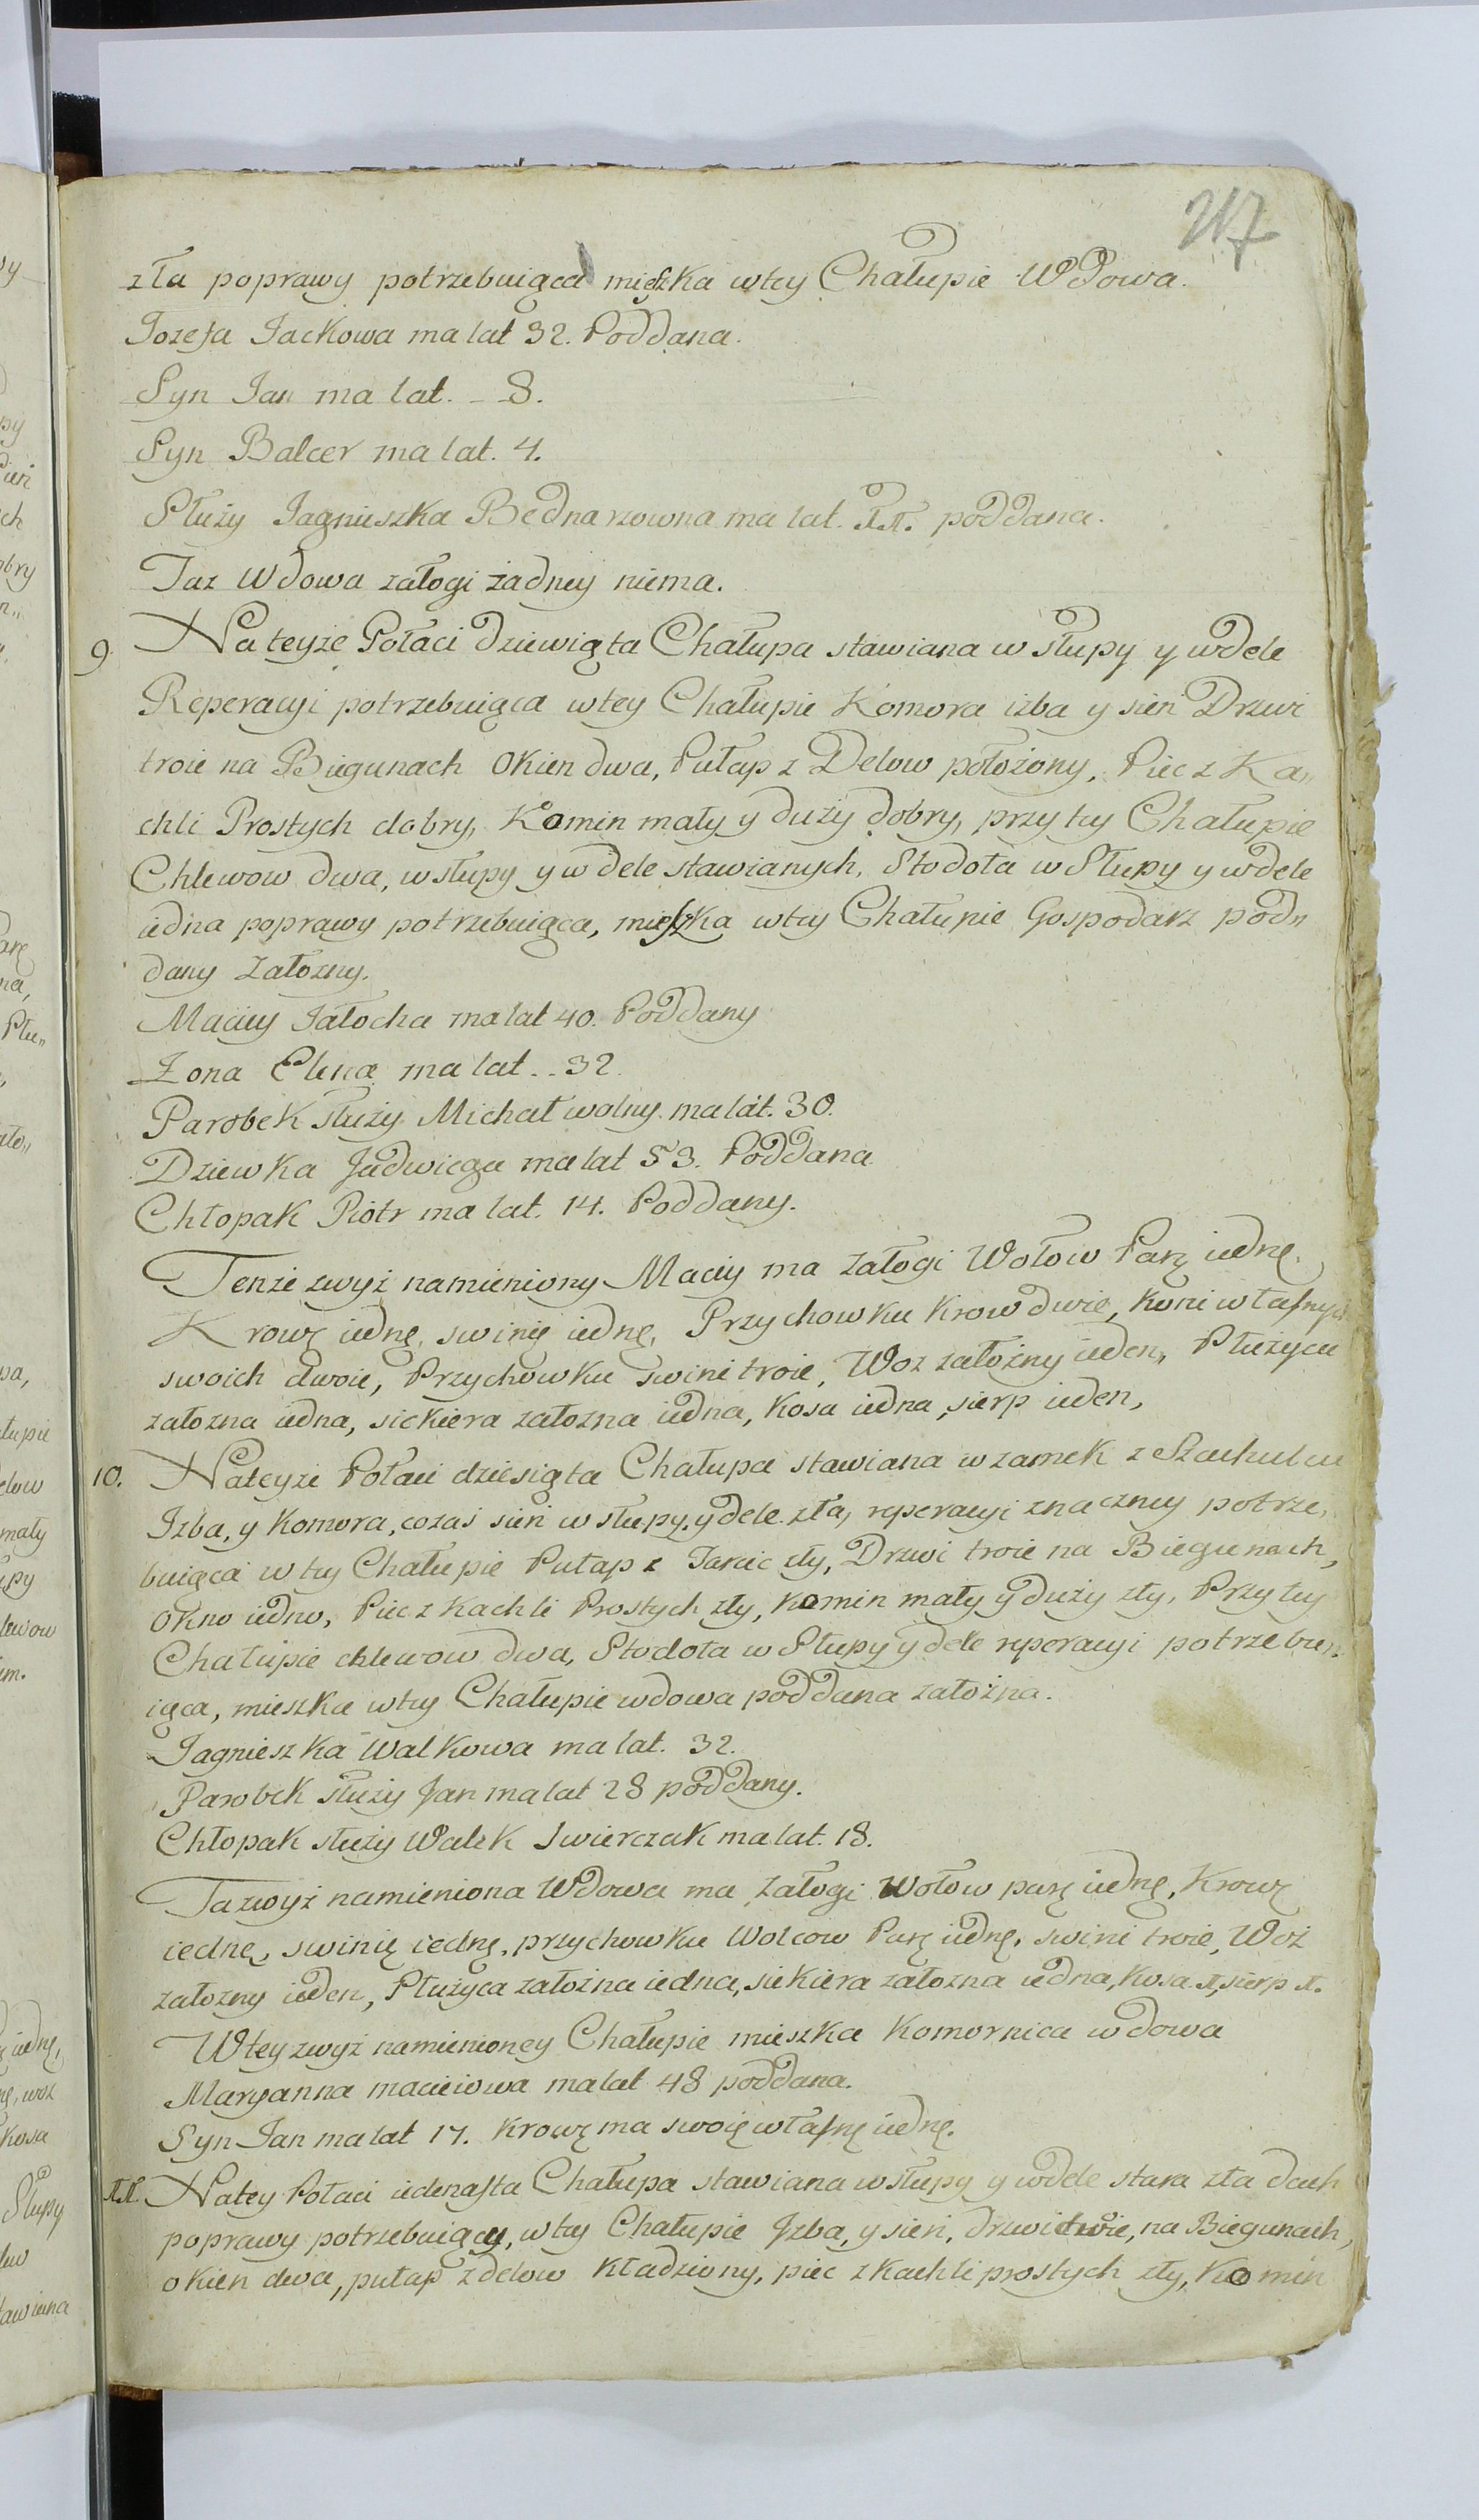 217
zła poprawy potrzebuiąca mięszka wtey Chałupie Wdowa.
Jozefa Jackowa ma lat 32. Poddana.
Syn Jan ma lat. _ 8.
Syn Balcer ma lat. 4.
Służy Jagnieszka Bednarzowna ma lat. 11. poddana.
Taz Wdowa załogi żadney niema.
9. Na teyże Połaci dziewiąta Chałupa stawiana w słupy y wdele
Reperacyi potrzebuiąca wtey Chałupie Komora izba y sień Drzwi
troie na Biegunach okien dwa, Pułap z Delow położony, Piec z Ka„
chli Prostych dobry, Komin mały y duży dobry, przy tey Chałupie
Chlewow dwa, w słupy y w dele stawianych, Stodoła w Słupy y wdele
iedna poprawy potrzebuiąca, mieszka wtey Chałupie Gospodarz pod„
dany Załozny.
Maciey Jałocha ma lat 40. Poddany
Zona Elena ma lat _ _ 32.
Parobek służy Michał wolny ma lat. 30.
Dziewka Jadwiega ma lat 53. Poddana
Chłopak Piotr ma lat. 14. Poddany.
Tenże zwyż namieniony Maciey ma Załogi Wołow Parę iednę.
Krowę iednę, swinię iednę, Przychowku Krow dwie, Koni własnych
swoich dwoie, Przychowku swini troie, Woz założny ieden, Płużyca
załozna iedna, siekiera załozna iedna, Kosa iedna, sierp ieden,
10. Nateyże Połaci dziesiąta Chałupa stawiana w zamek z Szachulcu
Izba, y Komora, cozaś sień w słupy, y dele zła, reperacyi znaczney potrze„
buiąca w tey Chałupie Pułap z Tarcic zły, Drzwi troie na Biegunach,
okno iedno, Piec z Kachli Prostych zły, Komin mały y duży zły, Przy tey
Chałupie chlewow dwa, Stodoła w Słupy y dele reperacyi potrzebu„
iąca, mieszka wtey Chałupie wdowa poddana założna.
Jagnieszka Walkowa ma lat. 32.
Parobek służy Jan ma lat 28 poddany.
Chłopak służy Walek Swierczak ma lat. 18.
Ta zwyż namieniona Wdowa ma Załogi Wołow parę iednę, Krowę
iednę, swinię iednę, przychowku Wolcow Parę iednę, swini troie, Woz
załozny ieden, Płużyca załóżna iedna, siekiera załozna iedna, Kosa 1, sierp 1.
Wtey zwyż namienioney Chałupie mieszka Komornica wdowa
Maryanna macieiowa ma lat 48 poddana.
Syn Jan ma lat 17. Krowę ma swoię własnę iednę.
11. Natey Połaci iedenasta Chałupa stawiana w słupy y wdele stara zła dach
poprawy potrzebuiący, wtey Chałupie Izba, y sień, drzwi dwie, na Biegunach,
okien dwa, pułap z delow kładziony, piec z kachli prostych zły, Komin